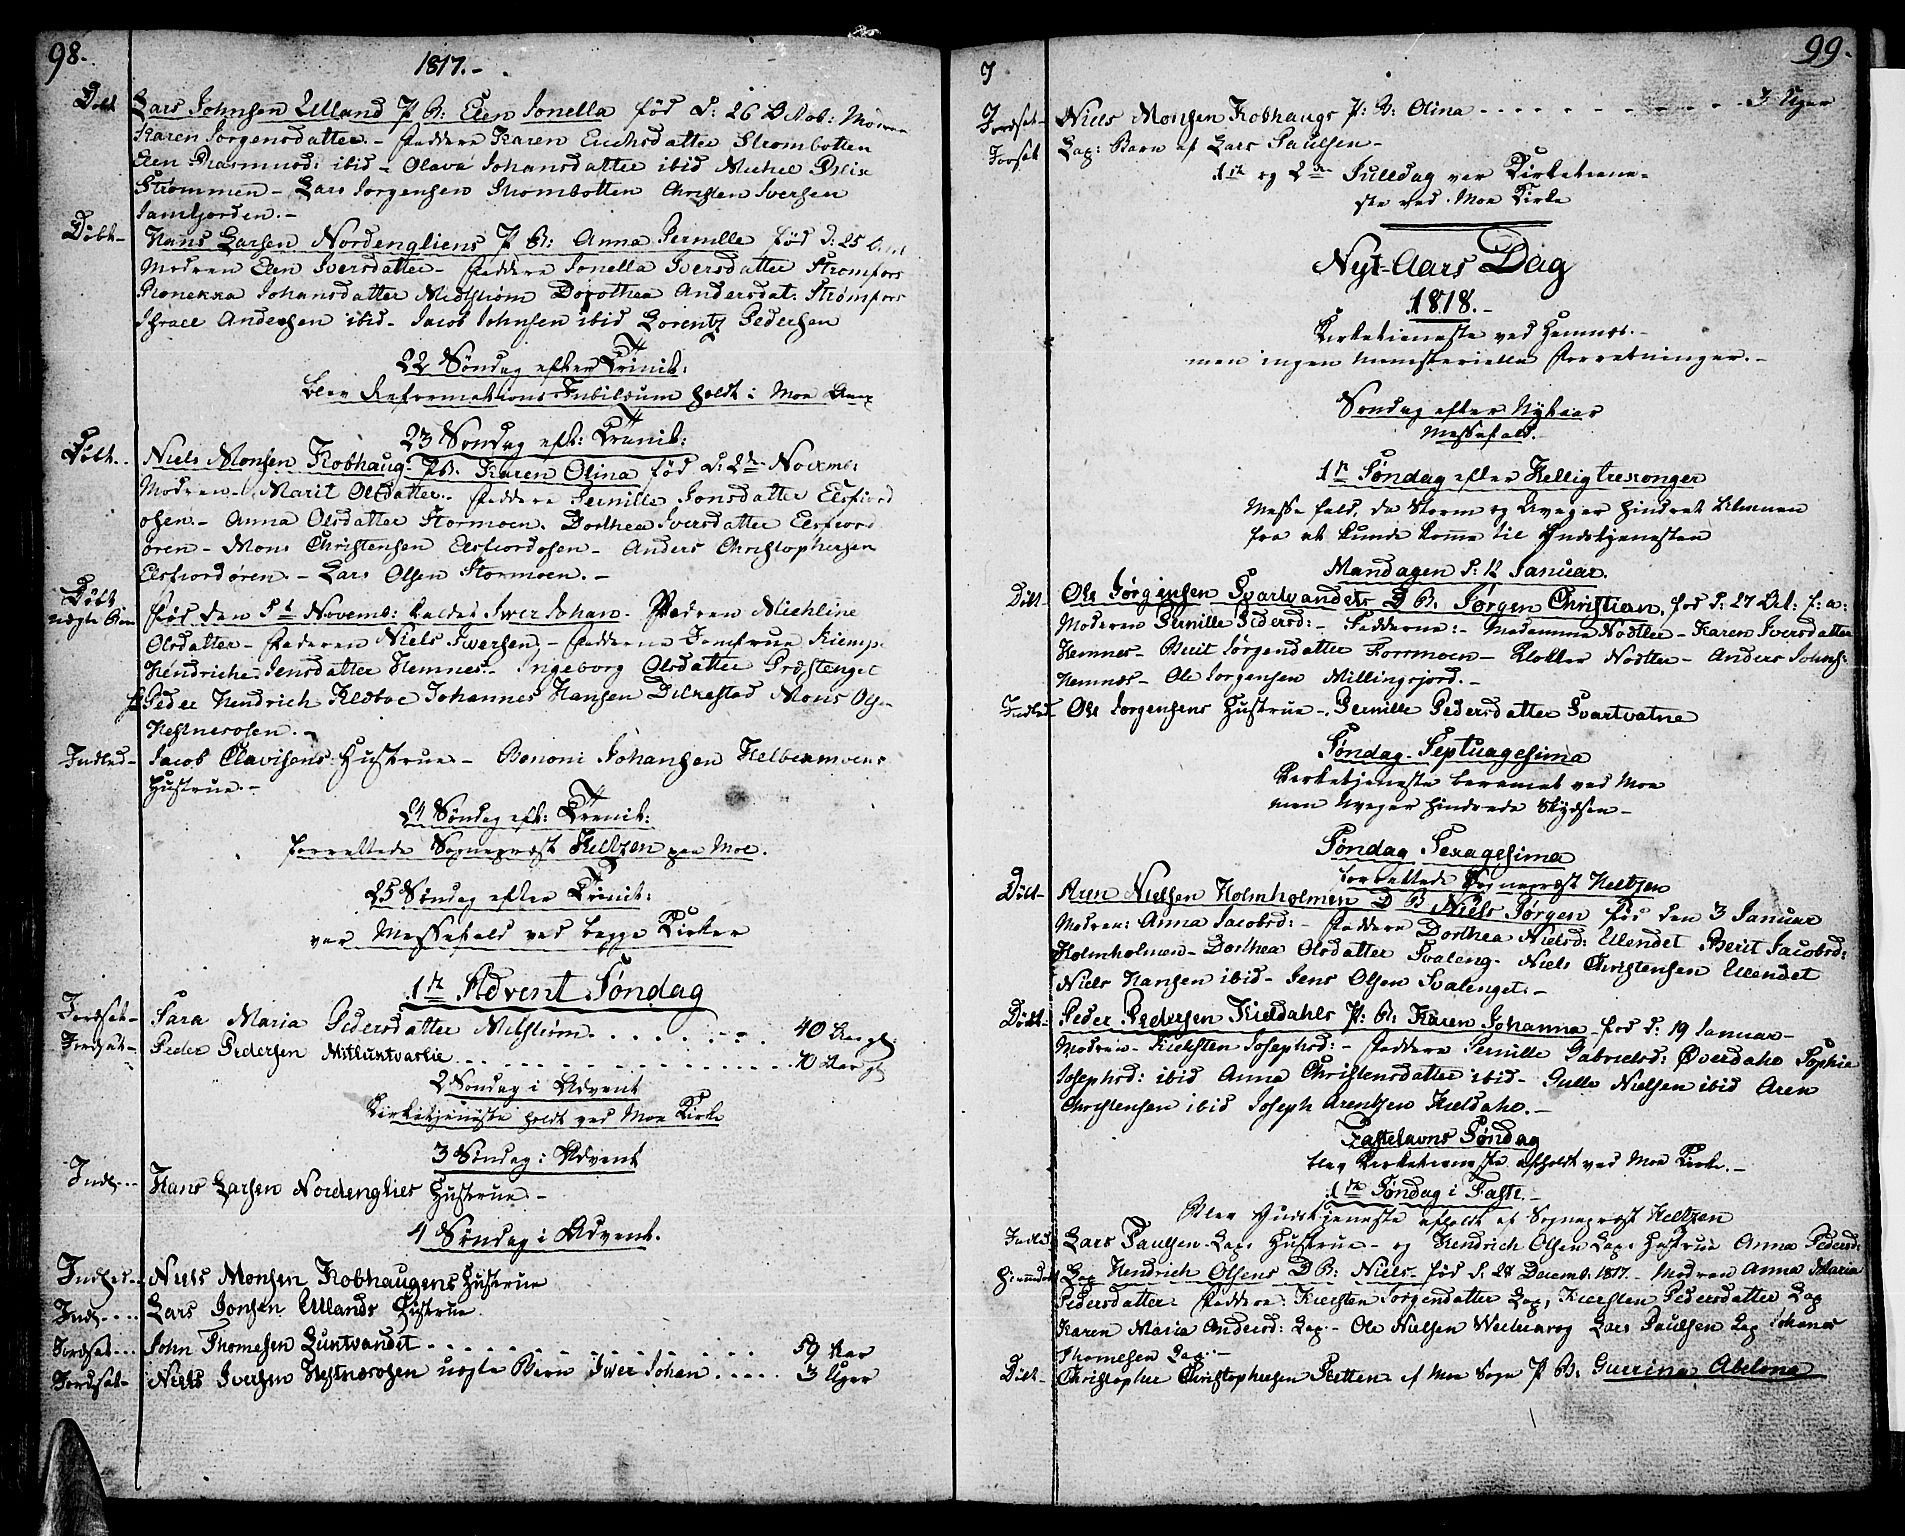 98.
1817.-
Døbt Lars Johnsen Ulland P B: Elen Jonella fød d: 26 Octob: Moder
Karen Jørgensdatter - Faddere Karen Erichsdatter Strombotten
Elen Rasmusd: ibid - Olava Johansdatter ibid Michel
Strømmen - Lars Jørgensen Strombotten Christen Iversen
Døbt - Hans Larsen Nordengliens P B: Anna Pernille fød d: 25
Modren Elen Iversdatter - Faddere Jonella Iversdatter Strømfors
Johansdatter Midtstrøm Dorothea Andersdat: Strømfors
Israel Andersen ibid - Jacob Johnsen ibid Lorentz Pedersen
22 Søndag efter Trinit:
blev Reformations Jubilæum holdt i Moe
23 Søndag eft: Trinit:
Døbt.. Niels Monsen Kobhaug P B. Karen Olina fød d: 2de Novemb:
Modren - Marit Olsdatter - Faddere Pernille Jonsdatter Elsfiord
osen - Anna Olsdatter Stormoen. Dorthea Iversdatter Elsfiord
øren - Mons Christensen Elsfiordosen - Anders Christophersen
Elsfiordøren. - Lars Olsen Stormoen. -
Døbt
uægte Barn fød den 5t Novemb: kaldet Iwer Johan - Modren Michline
Olsdatter - Faderen Niels Iwersen - Fadderne Jomfrue
Hendriche Jensdatter Hemnes - Ingeborg Olsdatter Præstenget
Peder Hendrich Johannes Hansen Mons Ols-
Hestnesosen. -
Indled - Jacob Clavisens Hustrue - Bononi Johansen
Hustrue. -
24 Søndag eft: Trinit:
forrettede Sognepræst Heltzen paa Moe.
25 Søndag efter Trinit:
var Messefald ved begge Kirker
1te Advent Søndag
Jordfæst - Sara Maria Pedersdatter Midstrøm . . . . . . . 40 Aar gl:
Jordfæst - Peder Pedersen . . . . . . . . . . . 70 Aar gl
2 Søndag i Advent
Kirketjeneste holdt ved Moe Kirke
3 Søndag i Advent
Indl... Hans Larsen Nordenglies Hustrue -
4 Søndag i Advent.
Indled.. Niels Monsen Kobhaugens Hustrue
Indl.... Lars Jonsen Ullands Hustrue
Jordfæst... John Thomesen Luntvandet . . . . . . . . . . . 59 Aar
Jordfæst - Niels Iversen Hestnesosen uægte Barn Iwer Johan . . . . . 3 Uger
99.
Jordfæst - Niels Monsen Kobhaugs P: B: Olina - - - - - - - - - - - 3 Uger
Jordfæst Lap: Barn af Lars Paulsen -
1te og 2den Juledag var Kirketiene-
ste ved Moe Kirke
Nyt-Aars Dag
1818. -
Kirketieneste ved Hemnes. -
men ingen ministerielle Forretninger. -
Søndag efter Nytaar
Messefald. -
1te Søndag efter Hellig tre konger
Messefald, da Storm og Uveyer hindret Almuen
fra at kunde komme til Gudstjenesten
Mandagen d: 12 Januar.
Døbt Ole Jørgensen Svartvandets D B. Jørgen Christian, fød d: 27 Oct: f: a:
Moderen Pernille Pedersd: - Fadderne: - Madamme Nodtler - Karen Iversdatter
Hemnes - Berit Jørgensdatter Forrmoen - Klokker Nodtler - Anders Johns:
Hemnes - Ole Jørgensen Millingsjord. -
Indled Ole Jørgensens Hustrue - Pernille Pedersdatter Svartvatne
Søndag Septuagesima
Kirketjeneste berammet ved Moe
men Uveyer hindrede Skydsen -
Søndag Sexagesima
forrettede Sognepræst Heltzen
Døbt - Aren Nielsen Holmholmen D B Niels Jørgen fød den 3 Januar
Modren: Anna Jacobsd: - Faddere Dorthea Nielsd: Ellendet Berit Jacobsd:
Holmholmen - Dorthea Olsdatter Svaleng - Niels Christensen Ellendet
Niels Hansen ibid - Jens Olsen Svalenget. -
Døbt - Peder Pedersen Kieldahls P: B: Karen Johanna - fød d: 19 Januar -
Modren - Kiersten Josephsd: - Faddere Pernille Gabrielsd: Øverdahl Sophie
Josephsd: ibid Anna Christensdatter ibid - Gulle Nielsen ibid Aren
Christensen ibid Joseph Arentzen Kieldahl. -
Fastelavns Søndag
blev Kirketieneste afholdt ved Moe Kirke. -
1te Søndag i Faste. -
Blev Gudstjeneste afholdt af Sognepræst Heltzen
Indled Lars Paulsen Lap: Hustrue - og Hendrich Olsen Lap: Hustrue Anna Pedersd:
Hiemedøbt Lap Hendrich Olsens D B: Niels - fød d: 24 Decemb. 1817. - Modren Anna Maria
Pedersdatter: Faddere: Kiersten Jørgendatter Lap, Kiersten Pedersdatter Lap
Karen Maria Andersd: Lap - Ole Nielsen og Lars Paulsen Lap Johanes
Thomesen Lap. -
Døbt - Christopher Christophersen Sletten af Moe Sogn P B: Guerina Abelona